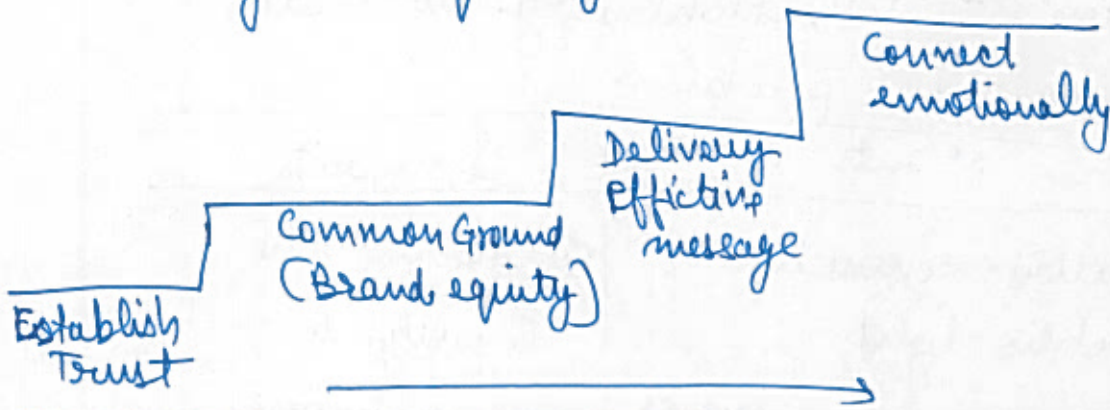 Establish
Trust
Common Ground
(Brand equity)
Delivery
Effictive
message
Connect
emotionally